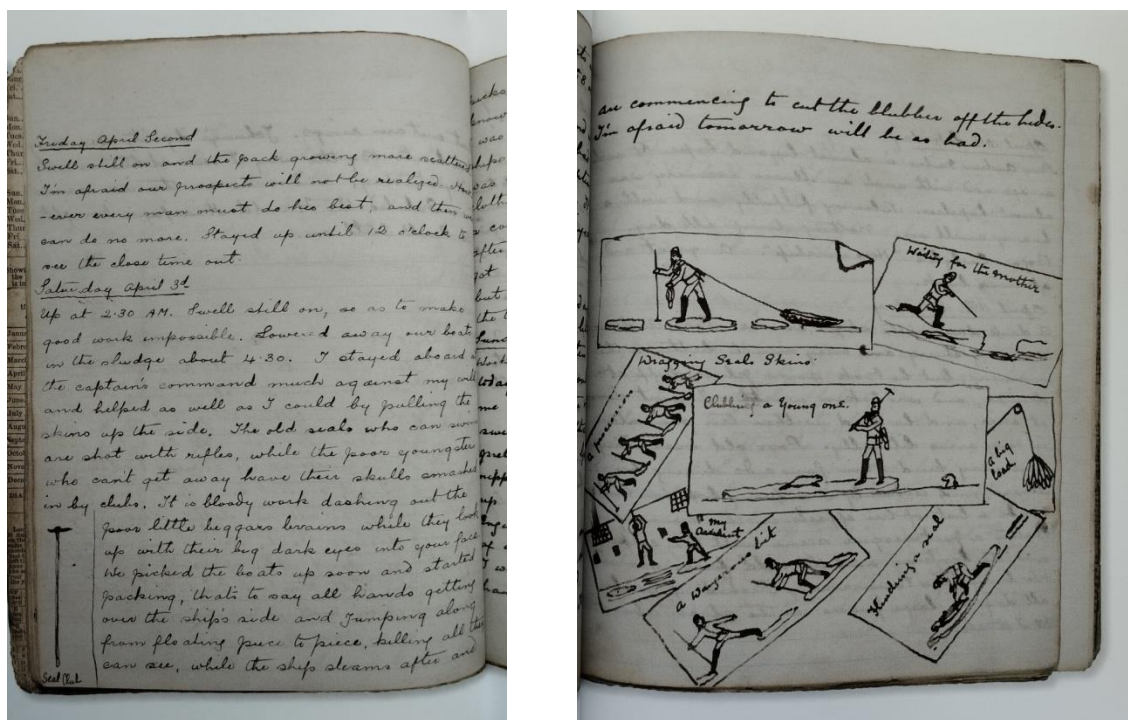 Friday April Second
Swell still on and the pack growing more scattered
I'm afraid our prospects will not be realized. How
-ever every man must do his best, and then we
can do no more. Stayed up until 12 o'clock to
see the close time out.
Saturday April 3d
Up at 2.30 AM. Swell still on, so as to make
good work impossible. Lowered away our boats
in the sludge about 4.30. I stayed aboard
the captain's command much against my will
and helped as well as I could by pulling the
skins up the side. The old seals who can swim
are shot with rifles, while the poor youngsters
who can't get away have their skulls smashed
in by clubs. It is bloody work dashing out the
poor little beggars brains while they look
up with their big dark eyes into your face
We picked the boats up soon and started
packing, thats to say all hands getting
over the ships side and jumping along
from floating piece to piece, killing all they
can see, while the ship steams after and
Seal Club
are commencing to cut the blubber off the hides.
I'm afraid tomorrow will be as bad.
Waiting for the Mother
Dragging Seals Skins.
Clubbing a Young one.
a big
load
my
accident
a
Hunding a seal